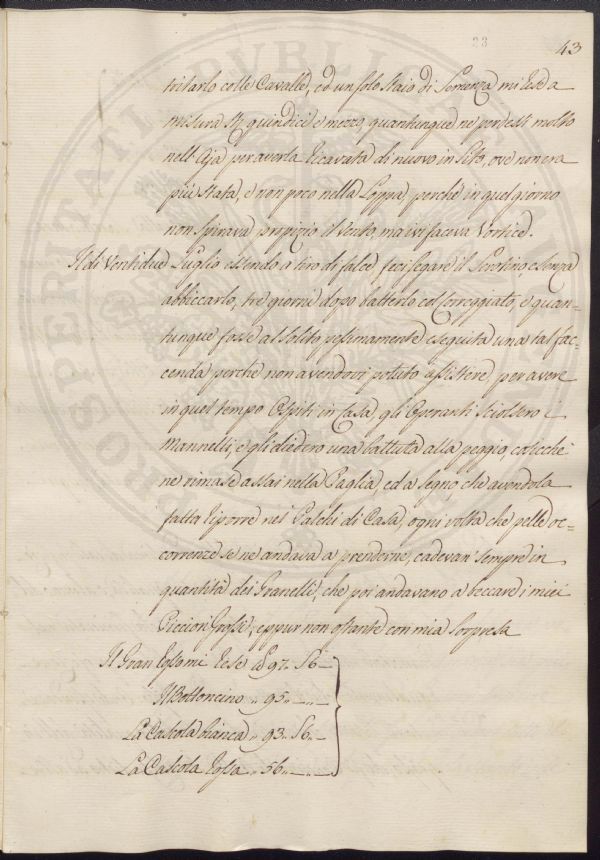 23
43
tritarlo colle Cavalle, ed un solo Staio di Semenza mi rese a
misura St. quindici e mezzo, quantunque ne perdessi molto
nell'Aja per averla ricavata di nuovo in Sito, ove non era
più stata, e non poco nella Loppa, perchè in quel giorno
non spirava propizio il vento, ma ivi faceva Vortice.
Il dì Ventidue Luglio essendo a tiro di falce, feci segare il e senza
abbiccarlo, tre giorni dopo batterlo col Coreggiato, e quan=
tunque fosse al solito pessimamente eseguita una tal fac=
cenda perchè non avendovi potuto assistere, per avere
in quel tempo Ospiti in Casa, gli Operanti sciolsero i
Mannelli, e gli diedero una battuta alla peggio, cosicchè
ne rimase assai nella Paglia, ed a segno, che avendola
fatta riporre nei Palchi di Casa, ogni volta che pelle oc=
correnze se ne andava a prenderne, cadevan sempre in
quantità dei Granelli, che poi andavano a beccare i miei
Piccioni Grossi; eppur non ostante con mia sorpresa
Il Gran rosso mi rese 97. 56
Il Bottoncino " 95
La Cascola bianca " 93. 56
La Cascola rossa " 56
PROSPERITATI PUBLICAE